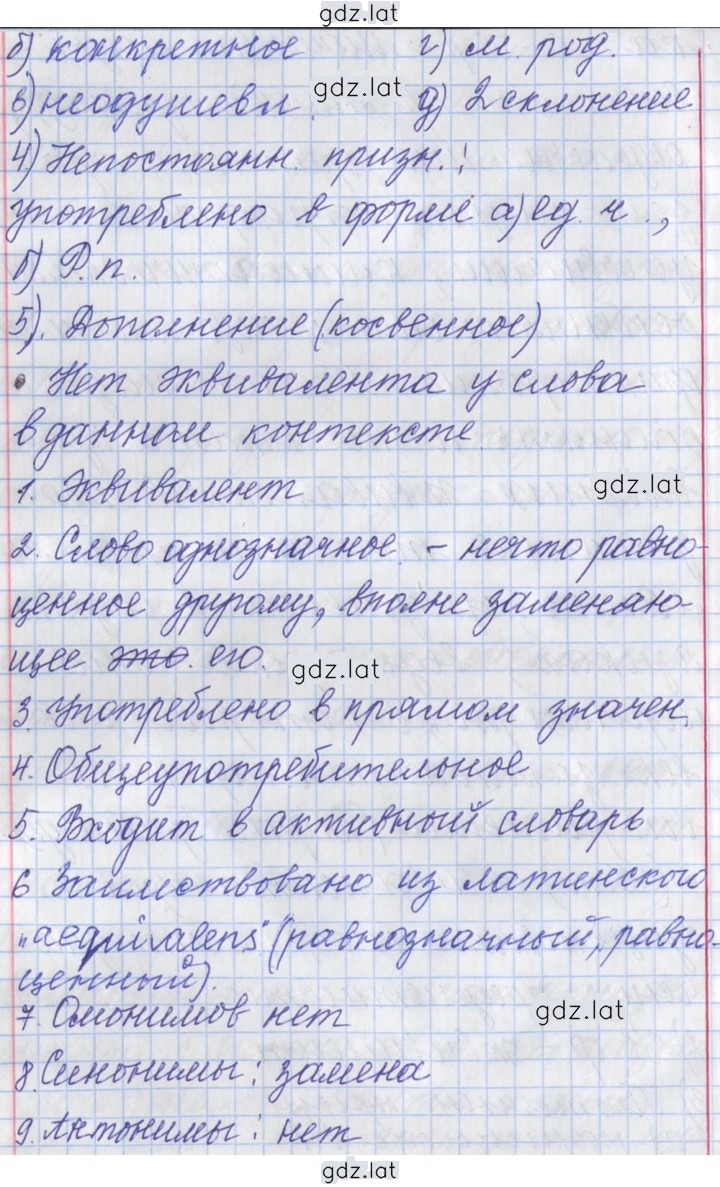 gdz.lat
б) конкретное г) м. род.
в) неодушевл. gdz.lat д) 2 склонение
4) Непостоянн. призн.:
употреблено в форме а) ед. ч.,
б) Р.п.
5). Дополнение (косвенное)
• Нет эквивалента у слова
в данном контексте
1. Эквивалент gdz.lat
2. Слово однозначное. – нечто равно-
ценное другому, вполне заменяю-
щее это. его. gdz.lat
3. Употреблено в прямом значен.
4. Общеупотребительное
5. Входит в активный словарь
6 Заимствовано из латинского
„aequivalens" (равнозначный, равно-
ценный).
7. Омонимов нет gdz.lat
8. Синонимы: замена
9. Антонимы: нет
gdz.lat